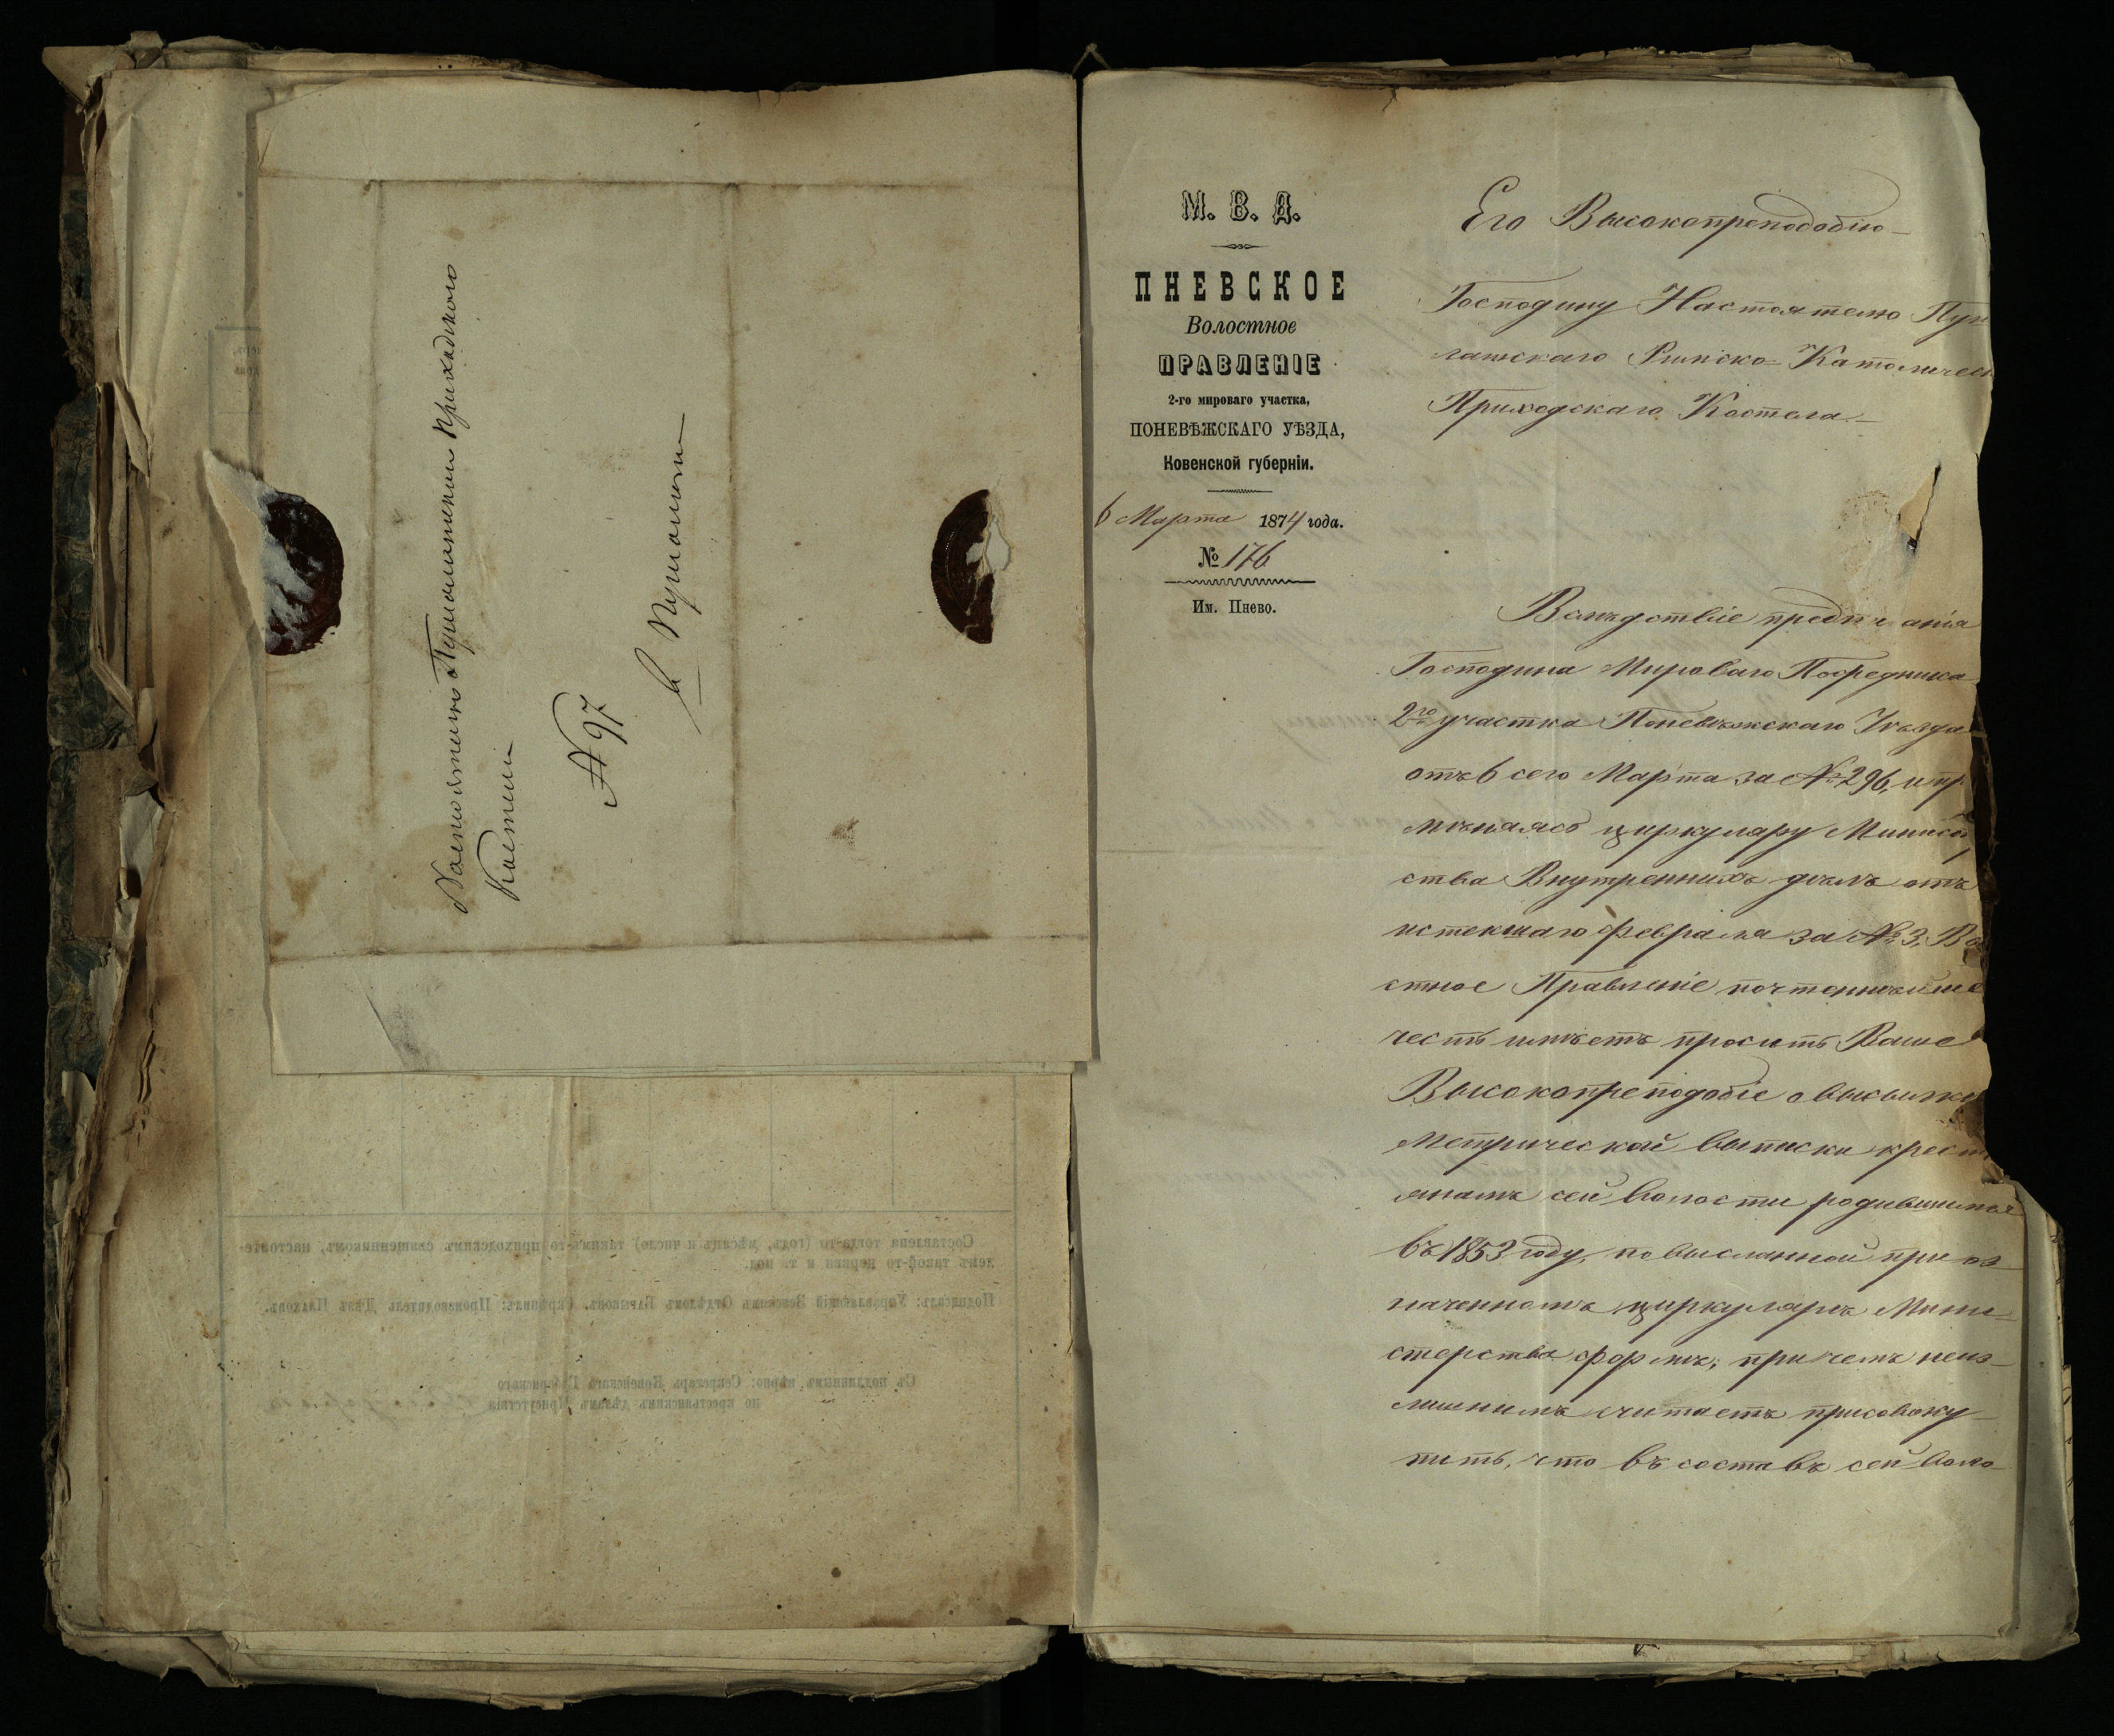 Настоятелю Пушолатскому Приходскаго
Костела
№ 97
в Пушолаты
Составлена тогда-то (годъ, мѣсяцъ и число) такимъ-то приходскимъ священникомъ, настояте-
лемъ такой-то церкви и т. под.
Подписалъ: Управляющій Земскимъ Отдѣломъ Скрѣпилъ: Производитель Дѣлъ
Съ подлиннымъ вѣрно: Секретарь Ковенскаго Губернскаго
по крестьянскимъ дѣламъ Присутствія
М. В. Д.
ПНЕВСКОЕ
Волостное
ПРАВЛЕНІЕ
2-го мироваго участка,
ПОНЕВѢЖСКАГО УѢЗДА,
Ковенской губерніи.
6 Марта 1874 года.
№ 176
Им. Пнево.
Его Высокопреподобію
Господину Настоятелю Пуш
латскаго Римско-Католическ
Приходскаго Костела
Вслѣдствіе предписанія
Господина Мироваго Посредника
2го участка Поневѣжскаго Уѣзда
отъ 6 сего Марта за № 296, и пр
мѣняясь циркуляру Минист
ства Внутреннихъ дѣлъ отъ
истекшаго февраля за № 3, Во
стное Правленіе почтеннѣйше
честь имѣетъ просить Ваше
Высокопреподобіе о высылкѣ
Метрической выписки крест
янамъ сей волости родившимся
въ 1853 году, по высланной при оз
наченномъ циркулярѣ Мини-
стерства формѣ; причемъ неиз-
лишнимъ считаетъ присовоку-
пить, что въ составѣ сей воло-